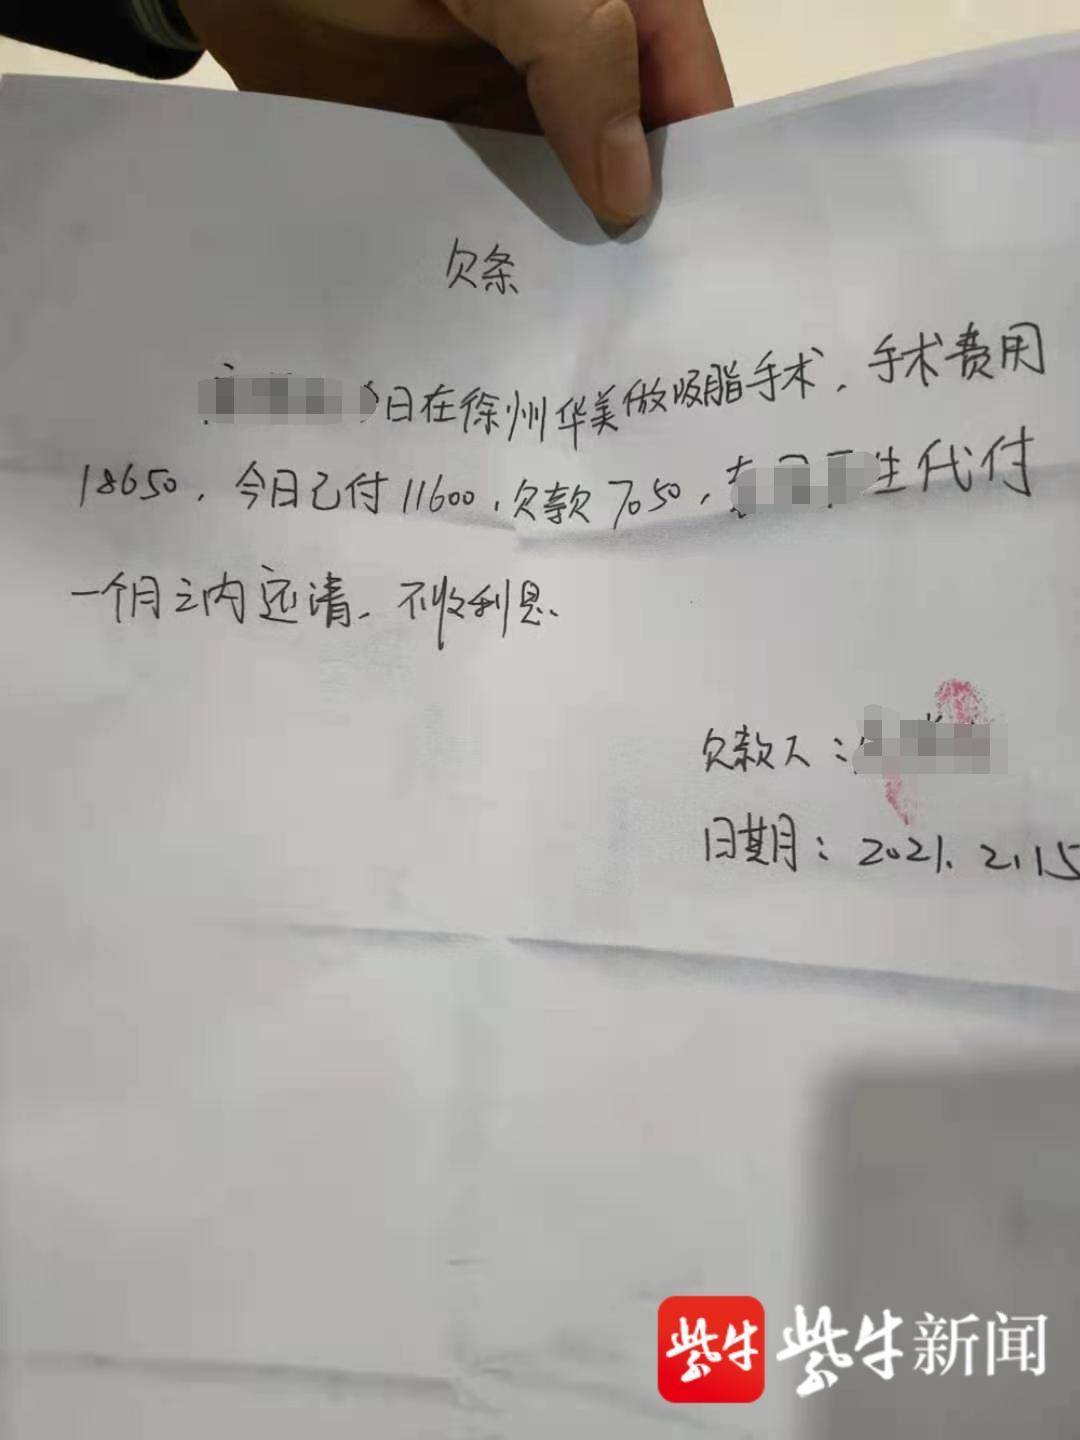 欠条
日在徐州华美做吸脂手术，手术费用
18650，今日已付11600，欠款7050，生代付
一个月之内还清，不收利息、
欠款人：
日期：2021.2.15
紫牛 紫牛新闻